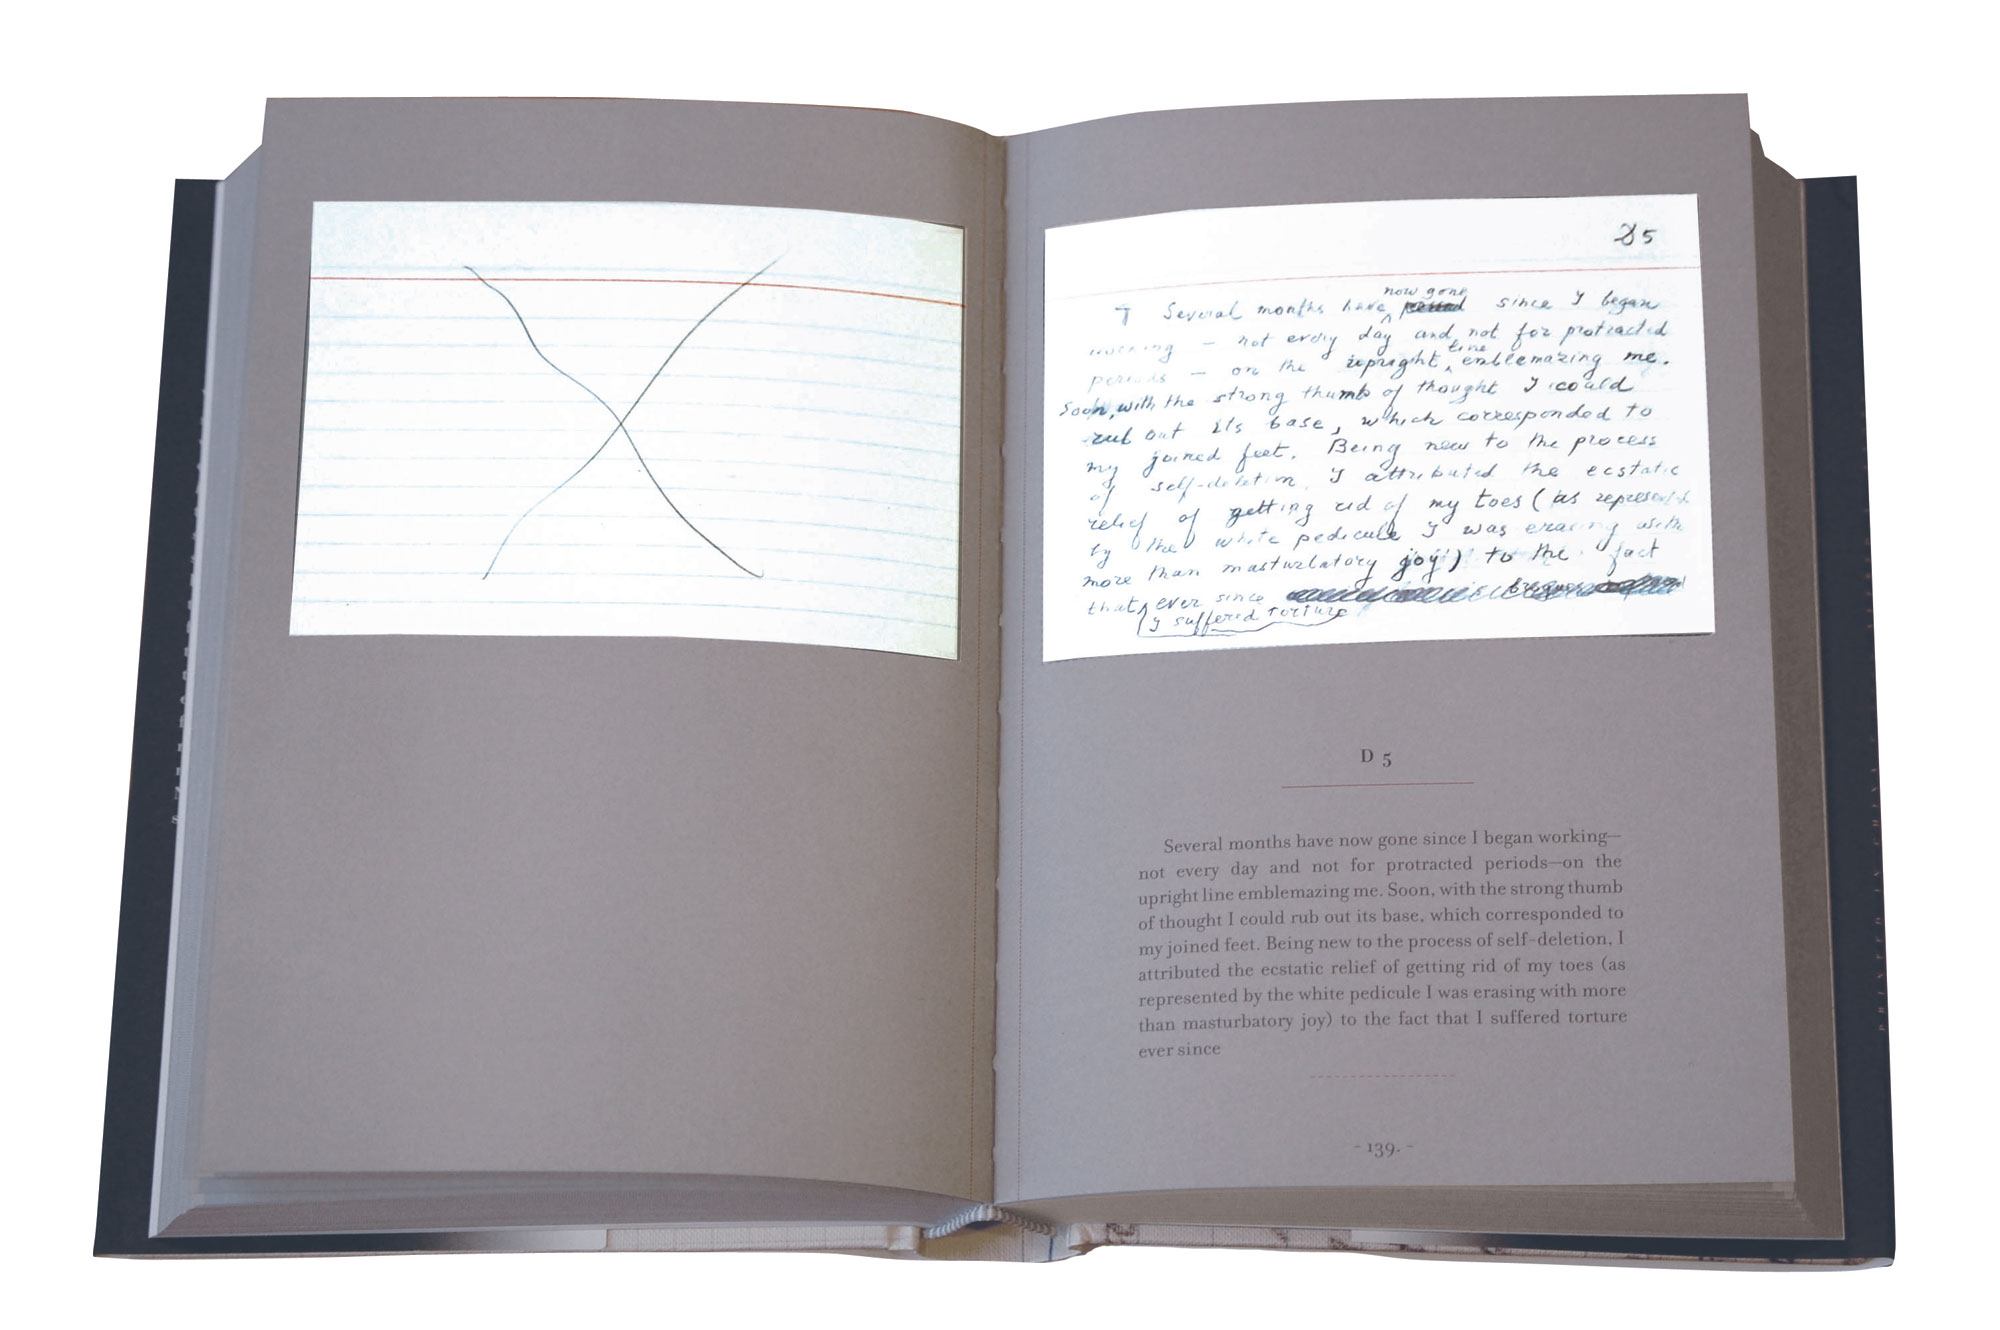 D 5
now gone
¶ Several months have ^ since I began
working — not every day and not for protracted
line
periods — on the upright ^ emblemazing me.
Soon, with the strong thumb of thought I could
rub out its base, which corresponded to
my joined feet. Being new to the process
of self-deletion, I attributed the ecstatic
relief of getting rid of my toes (as represented
by the white pedicule I was erasing with
more than masturbatory joy) to the fact
that ^ ever since
I suffered torture
D 5
Several months have now gone since I began working—
not every day and not for protracted periods—on the
upright line emblemazing me. Soon, with the strong thumb
of thought I could rub out its base, which corresponded to
my joined feet. Being new to the process of self-deletion, I
attributed the ecstatic relief of getting rid of my toes (as
represented by the white pedicule I was erasing with more
than masturbatory joy) to the fact that I suffered torture
ever since
- 139. -